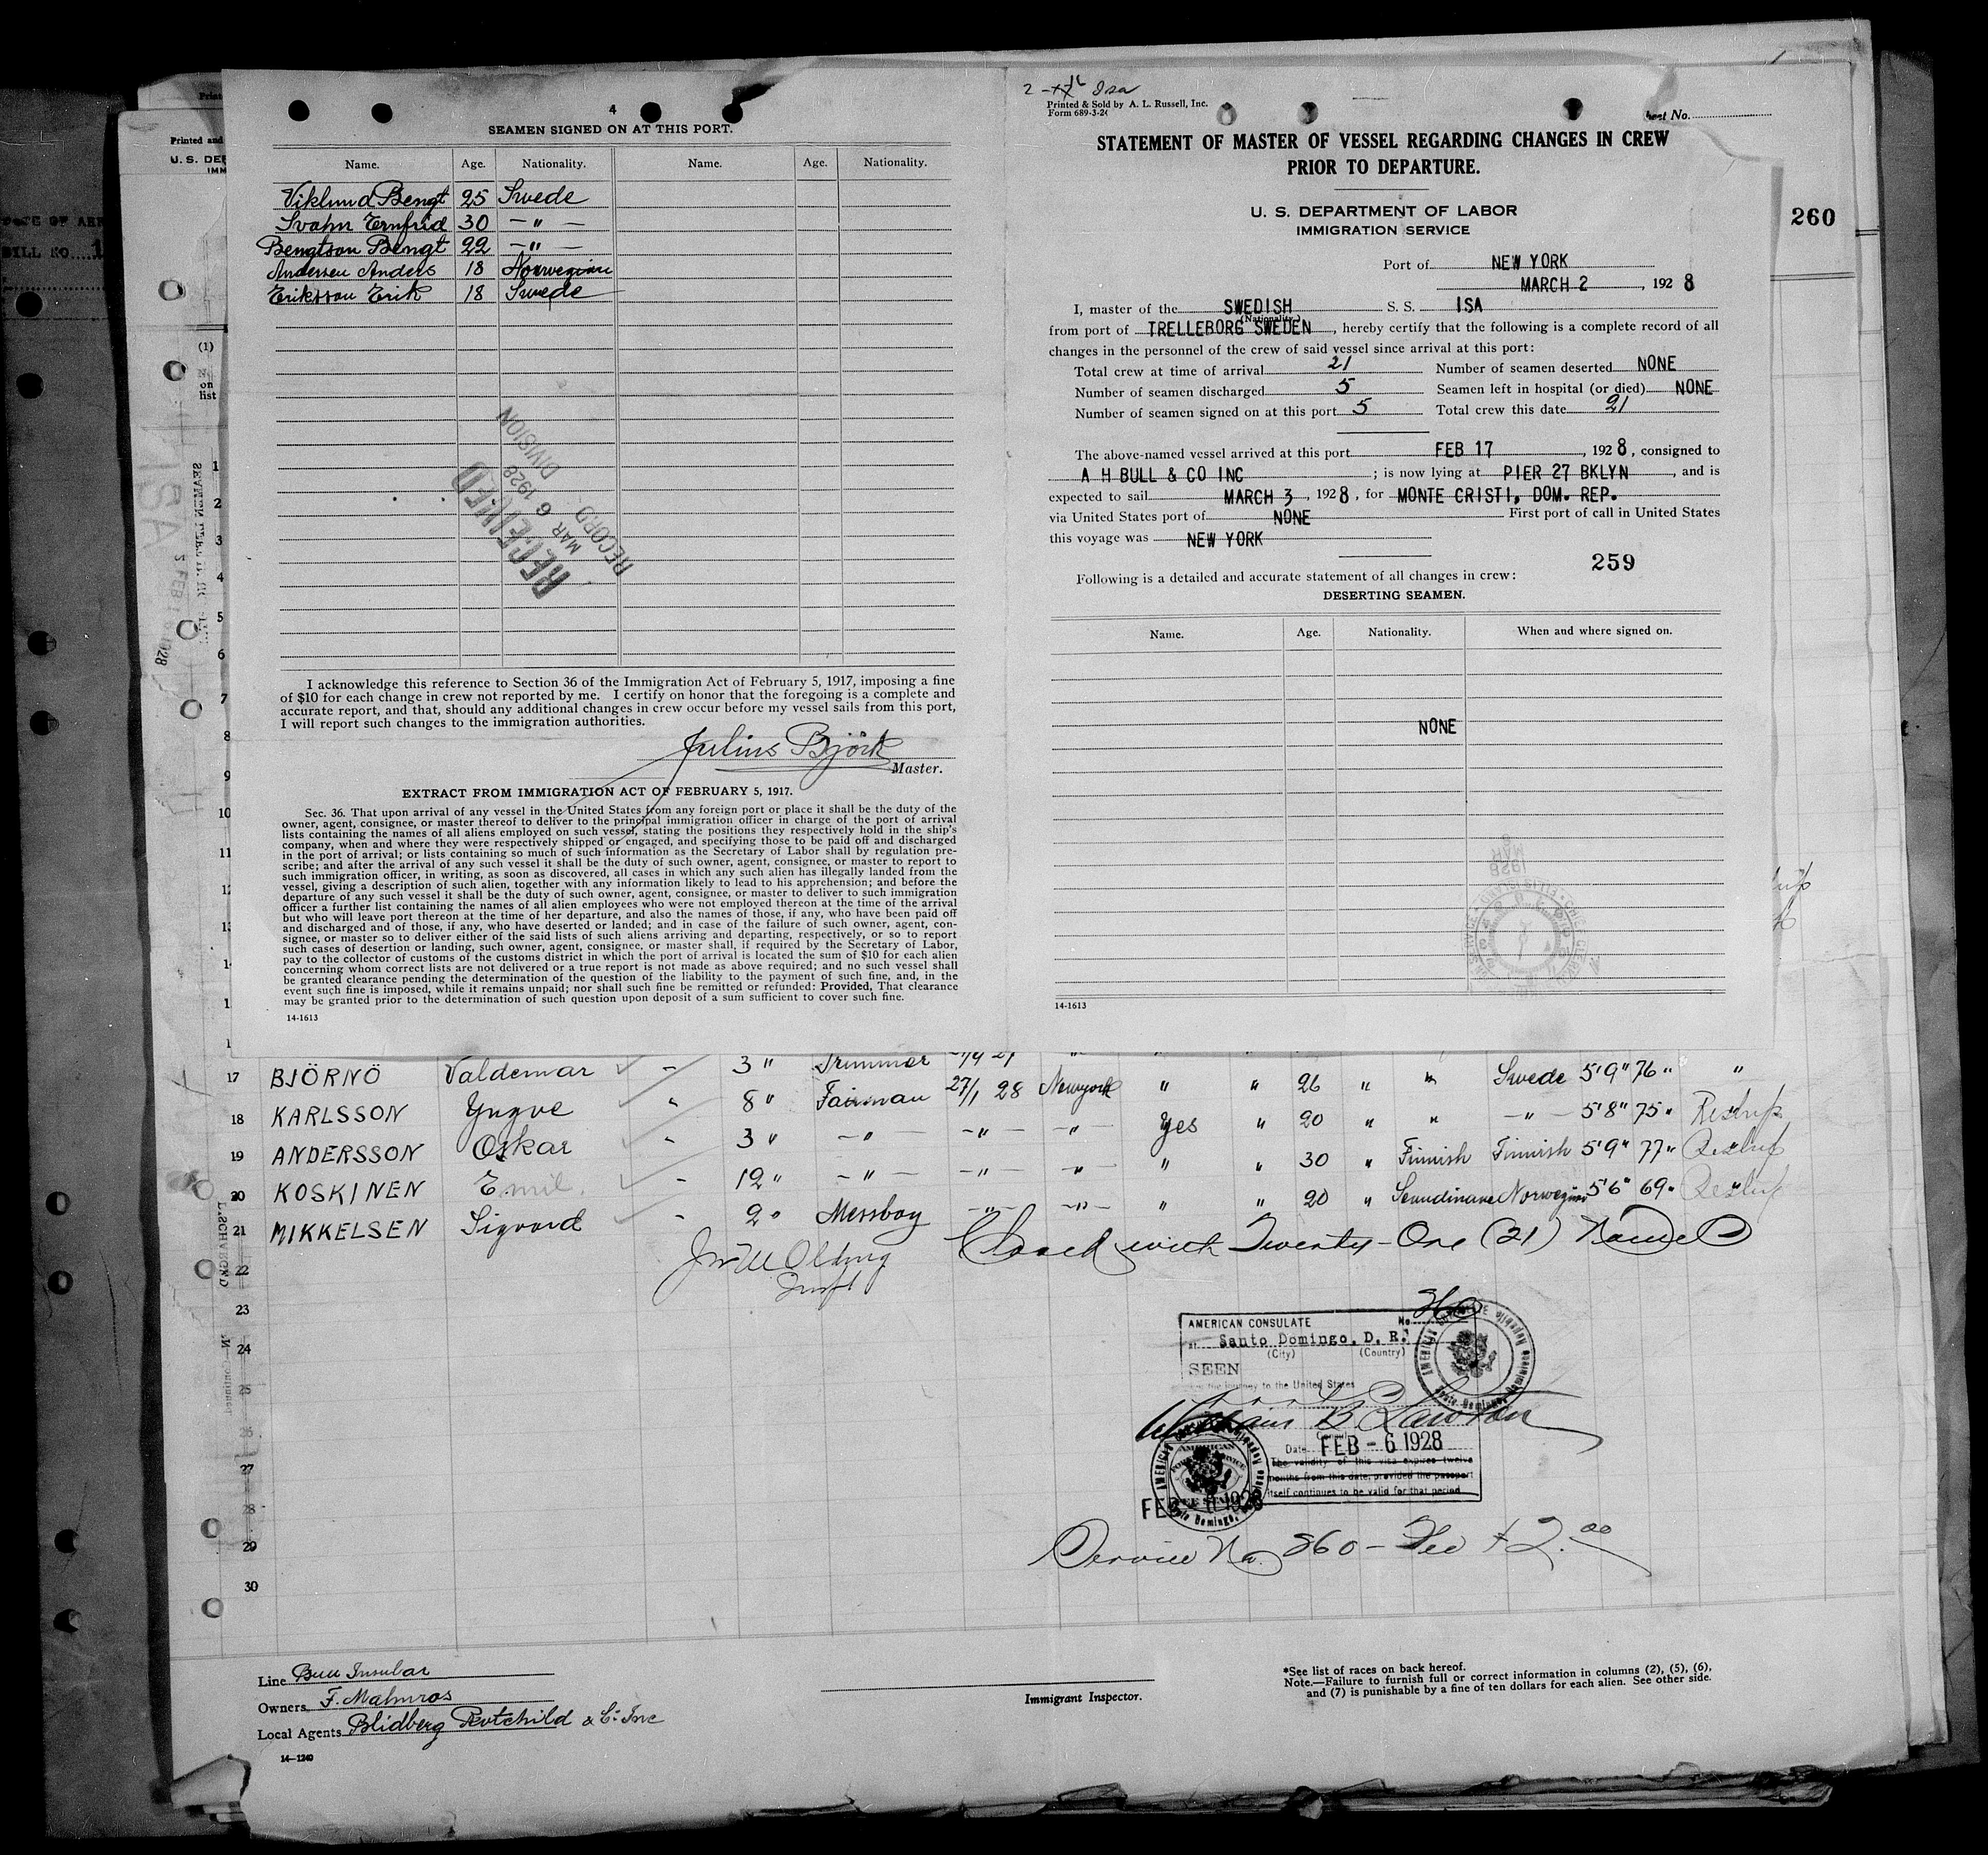 4
SEAMEN SIGNED ON AT THIS PORT.
Name. Age. Nationality. Name. Age. Nationality.
Viklund Bengt 25 Swede
Svahn Ernfrid 30 — " —
Bengtson Bengt 22 — " —
Andersen Anders 18 Norwegian
Eriksson Erik 18 Swede
RECEIVED
MAR 6 1928
RECORD DIVISION
I acknowledge this reference to Section 36 of the Immigration Act of February 5, 1917, imposing a fine
of $10 for each change in crew not reported by me. I certify on honor that the foregoing is a complete and
accurate report, and that, should any additional changes in crew occur before my vessel sails from this port,
I will report such changes to the immigration authorities.
Julius Björk
Master.
EXTRACT FROM IMMIGRATION ACT OF FEBRUARY 5, 1917.
Sec. 36. That upon arrival of any vessel in the United States from any foreign port or place it shall be the duty of the
owner, agent, consignee, or master thereof to deliver to the principal immigration officer in charge of the port of arrival
lists containing the names of all aliens employed on such vessel, stating the positions they respectively hold in the ship's
company, when and where they were respectively shipped or engaged, and specifying those to be paid off and discharged
in the port of arrival; or lists containing so much of such information as the Secretary of Labor shall by regulation pre-
scribe; and after the arrival of any such vessel it shall be the duty of such owner, agent, consignee, or master to report to
such immigration officer, in writing, as soon as discovered, all cases in which any such alien has illegally landed from the
vessel, giving a description of such alien, together with any information likely to lead to his apprehension; and before the
departure of any such vessel it shall be the duty of such owner, agent, consignee, or master to deliver to such immigration
officer a further list containing the names of all alien employees who were not employed thereon at the time of the arrival
but who will leave port thereon at the time of her departure, and also the names of those, if any, who have been paid off
and discharged and of those, if any, who have deserted or landed; and in case of the failure of such owner, agent, con-
signee, or master so to deliver either of the said lists of such aliens arriving and departing, respectively, or so to report
such cases of desertion or landing, such owner, agent, consignee, or master shall, if required by the Secretary of Labor,
pay to the collector of customs of the customs district in which the port of arrival is located the sum of $10 for each alien
concerning whom correct lists are not delivered or a true report is not made as above required; and no such vessel shall
be granted clearance pending the determination of the question of the liability to the payment of such fine, and, in the
event such fine is imposed, while it remains unpaid; nor shall such fine be remitted or refunded: Provided, That clearance
may be granted prior to the determination of such question upon deposit of a sum sufficient to cover such fine.
14-1613
Isa
Printed & Sold by A. L. Russell, Inc.
Form 689-3-2
No.
STATEMENT OF MASTER OF VESSEL REGARDING CHANGES IN CREW
PRIOR TO DEPARTURE.
U. S. DEPARTMENT OF LABOR
IMMIGRATION SERVICE
260
Port of NEW YORK
MARCH 2, 1928
I, master of the SWEDISH S. S. ISA
(Nationality)
from port of TRELLEBORG SWEDEN, hereby certify that the following is a complete record of all
changes in the personnel of the crew of said vessel since arrival at this port:
Total crew at time of arrival 21 Number of seamen deserted NONE
Number of seamen discharged 5 Seamen left in hospital (or died) NONE
Number of seamen signed on at this port 5 Total crew this date 21
The above-named vessel arrived at this port FEB 17, 1928, consigned to
A H BULL & CO INC; is now lying at PIER 27 BKLYN, and is
expected to sail MARCH 3, 1928, for MONTE CRISTI, DOM. REP.
via United States port of NONE First port of call in United States
this voyage was NEW YORK
259
Following is a detailed and accurate statement of all changes in crew:
DESERTING SEAMEN.
Name. Age. Nationality. When and where signed on.
NONE
14-1613
Printed and
U. S. DE
IMM
(1)
on
list
1
2
3
4
5
6
7
8
9
10
11
17 BJÖRNÖ Valdemar 3 " Trimmer " " 26 " " Swede 5'9" 76 " "
18 KARLSSON Yngve " 8 " Fairman 27/1 28 Newyork Yes " 20 " " — " — 5'8" 75 "
19 ANDERSSON Oskar " 3 " — " — — " — — " — " " 30 " Finnish Finnish 5'9" 77 "
20 KOSKINEN Emil " 12 " — " — — " — — " — " " 20 " Scandinave Norwegian 5'6" 69 "
21 MIKKELSEN Sigvard " 2 " Messboy — " — — " —
Closed with Twenty-One (21) Names
22
23
24
25
26
27
28
29
30
360
AMERICAN CONSULATE No.
Santo Domingo, D. R.
(City) (Country)
SEEN
journey to the United States
William B. Lawton
Date FEB - 6 1928
The validity of this visa expires twelve
months from this date, provided the passport
itself continues to be valid for that period
Service No. 360 — Fee $2.00
Line Bull Insular
Owners F. Malmros
Local Agents Blidberg Rotchild & Co Inc
14—1240
Immigrant Inspector.
*See list of races on back hereof.
Note.—Failure to furnish full or correct information in columns (2), (5), (6),
and (7) is punishable by a fine of ten dollars for each alien. See other side.